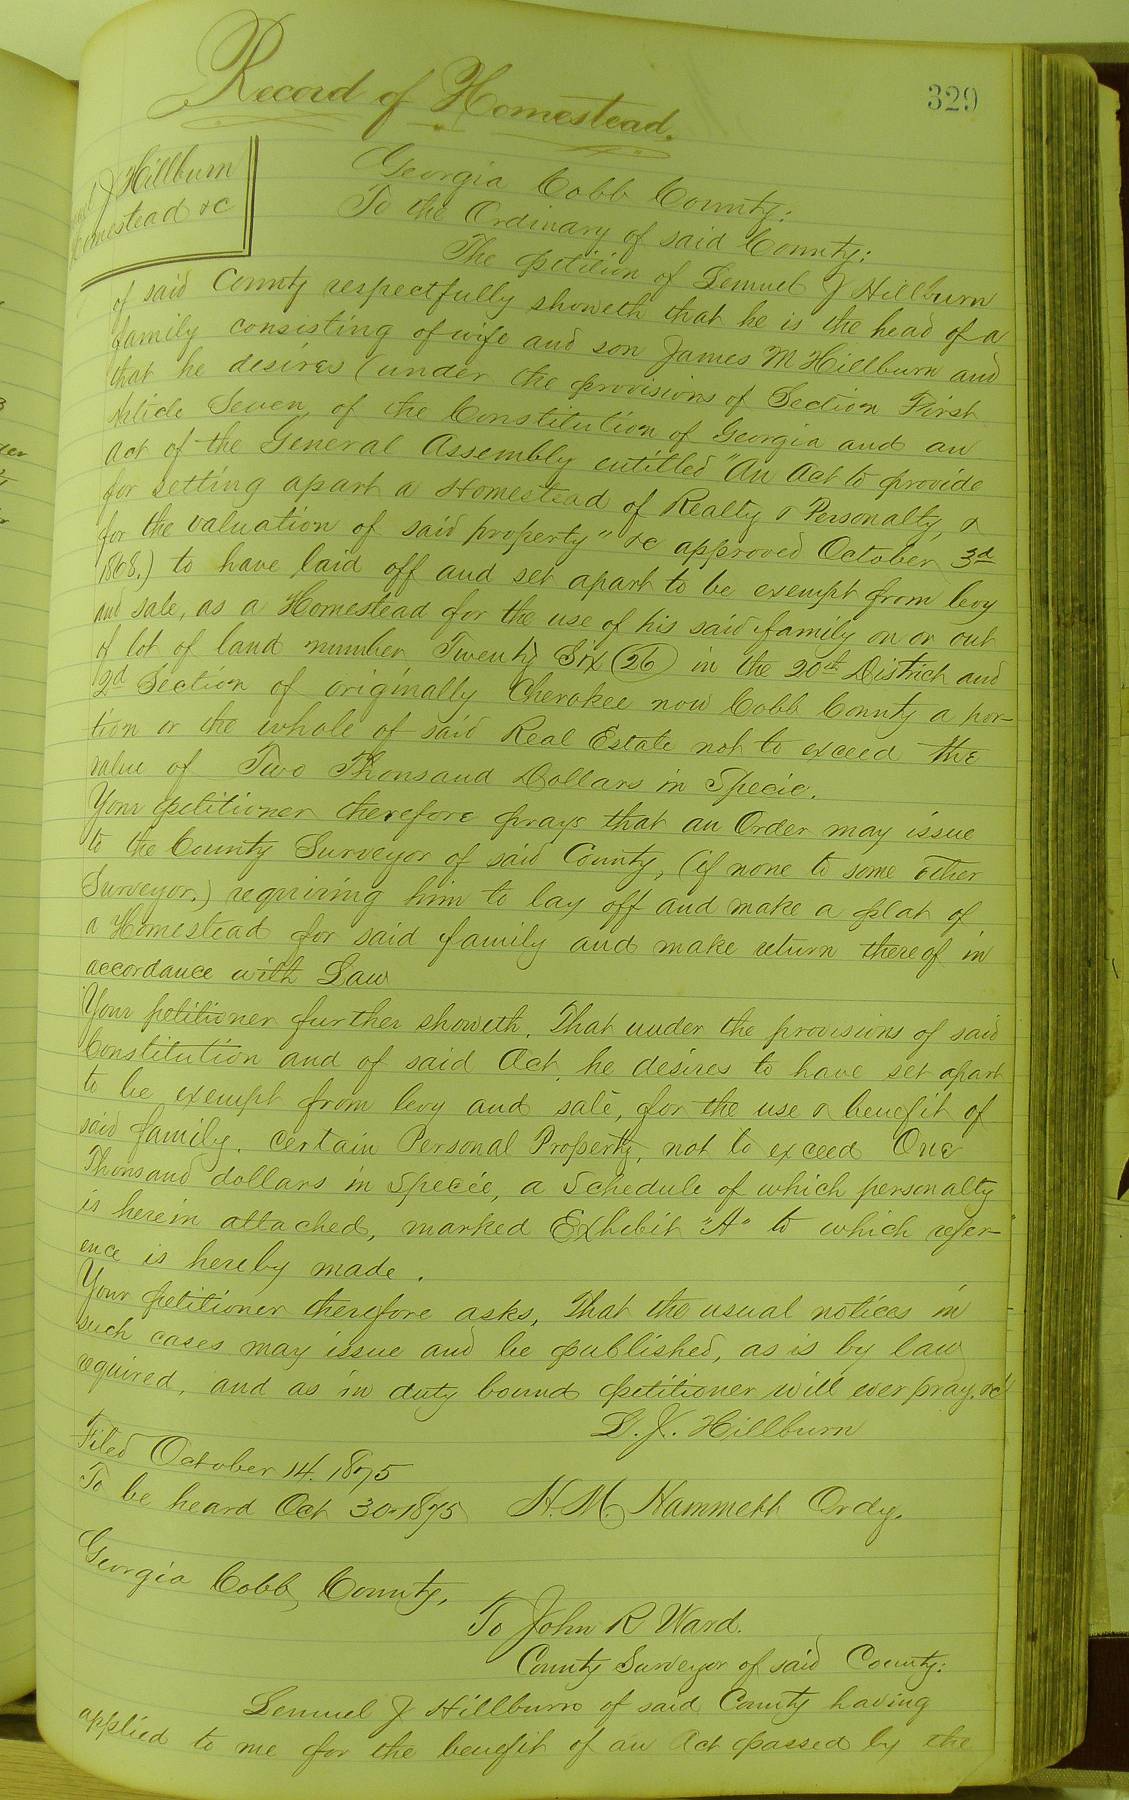 Record of Homestead.
329
J Hillburn
Homestead &c
Georgia Cobb County:
To the Ordinary of said County:
The petition of Lemuel J Hillburn
of said County respectfully showeth that he is the head of a
family consisting of wife and son James M Hillburn and
that he desires (under the provisions of Section First
Article Seven, of the Constitution of Georgia and an
Act of the General Assembly entitled "An Act to provide
for setting apart a Homestead of Realty & Personalty, &
for the valuation of said property" &c approved October 3d
1868.) to have laid off and set apart to be exempt from levy
and sale, as a Homestead for the use of his said family on or out
of lot of land number Twenty Six (26) in the 20th District and
2d Section of originally Cherokee now Cobb County a por-
tion or the whole of said Real Estate not to exceed the
value of Two Thousand Dollars in Specie.
Your petitioner therefore prays that an Order may issue
to the County Surveyor of said County, (if none to some other
Surveyor.) requiring him to lay off and make a plat of
a Homestead for said family and make return thereof in
accordance with Law
Your petitioner further showeth. That under the provisions of said
Constitution and of said Act, he desires to have set apart
to be exempt from levy and sale, for the use & benefit of
said family. certain Personal Property, not to exceed One
Thousand dollars in Specie, a Schedule of which personalty
is herein attached, marked Exhibit "A" to which refer-
ence is hereby made.
Your petitioner therefore asks, That the usual notices in
such cases may issue and be published, as is by law
required, and as in duty bound petitioner will ever pray. &c
L. J. Hillburn
Filed October 14. 1875
To be heard Oct 30-1875 H. M. Hammett Ordy.
Georgia Cobb County,
To John R Ward.
County Surveyor of said County:
Lemuel J Hillburn of said County having
applied to me for the benefit of an Act passed by the